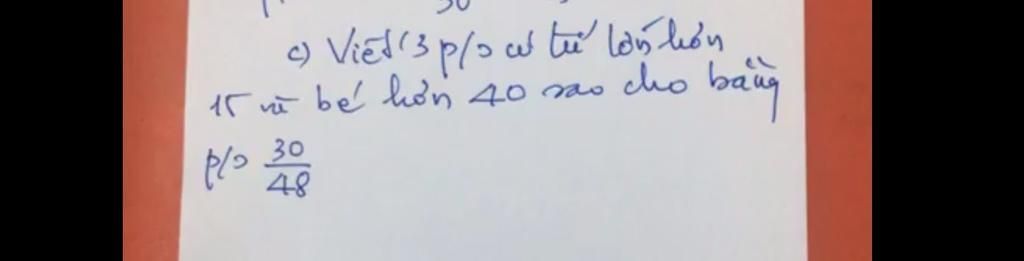 c) Viết 3 p/s có tử lớn hơn
15 và bé hơn 40 sao cho bằng
p/s 30/48